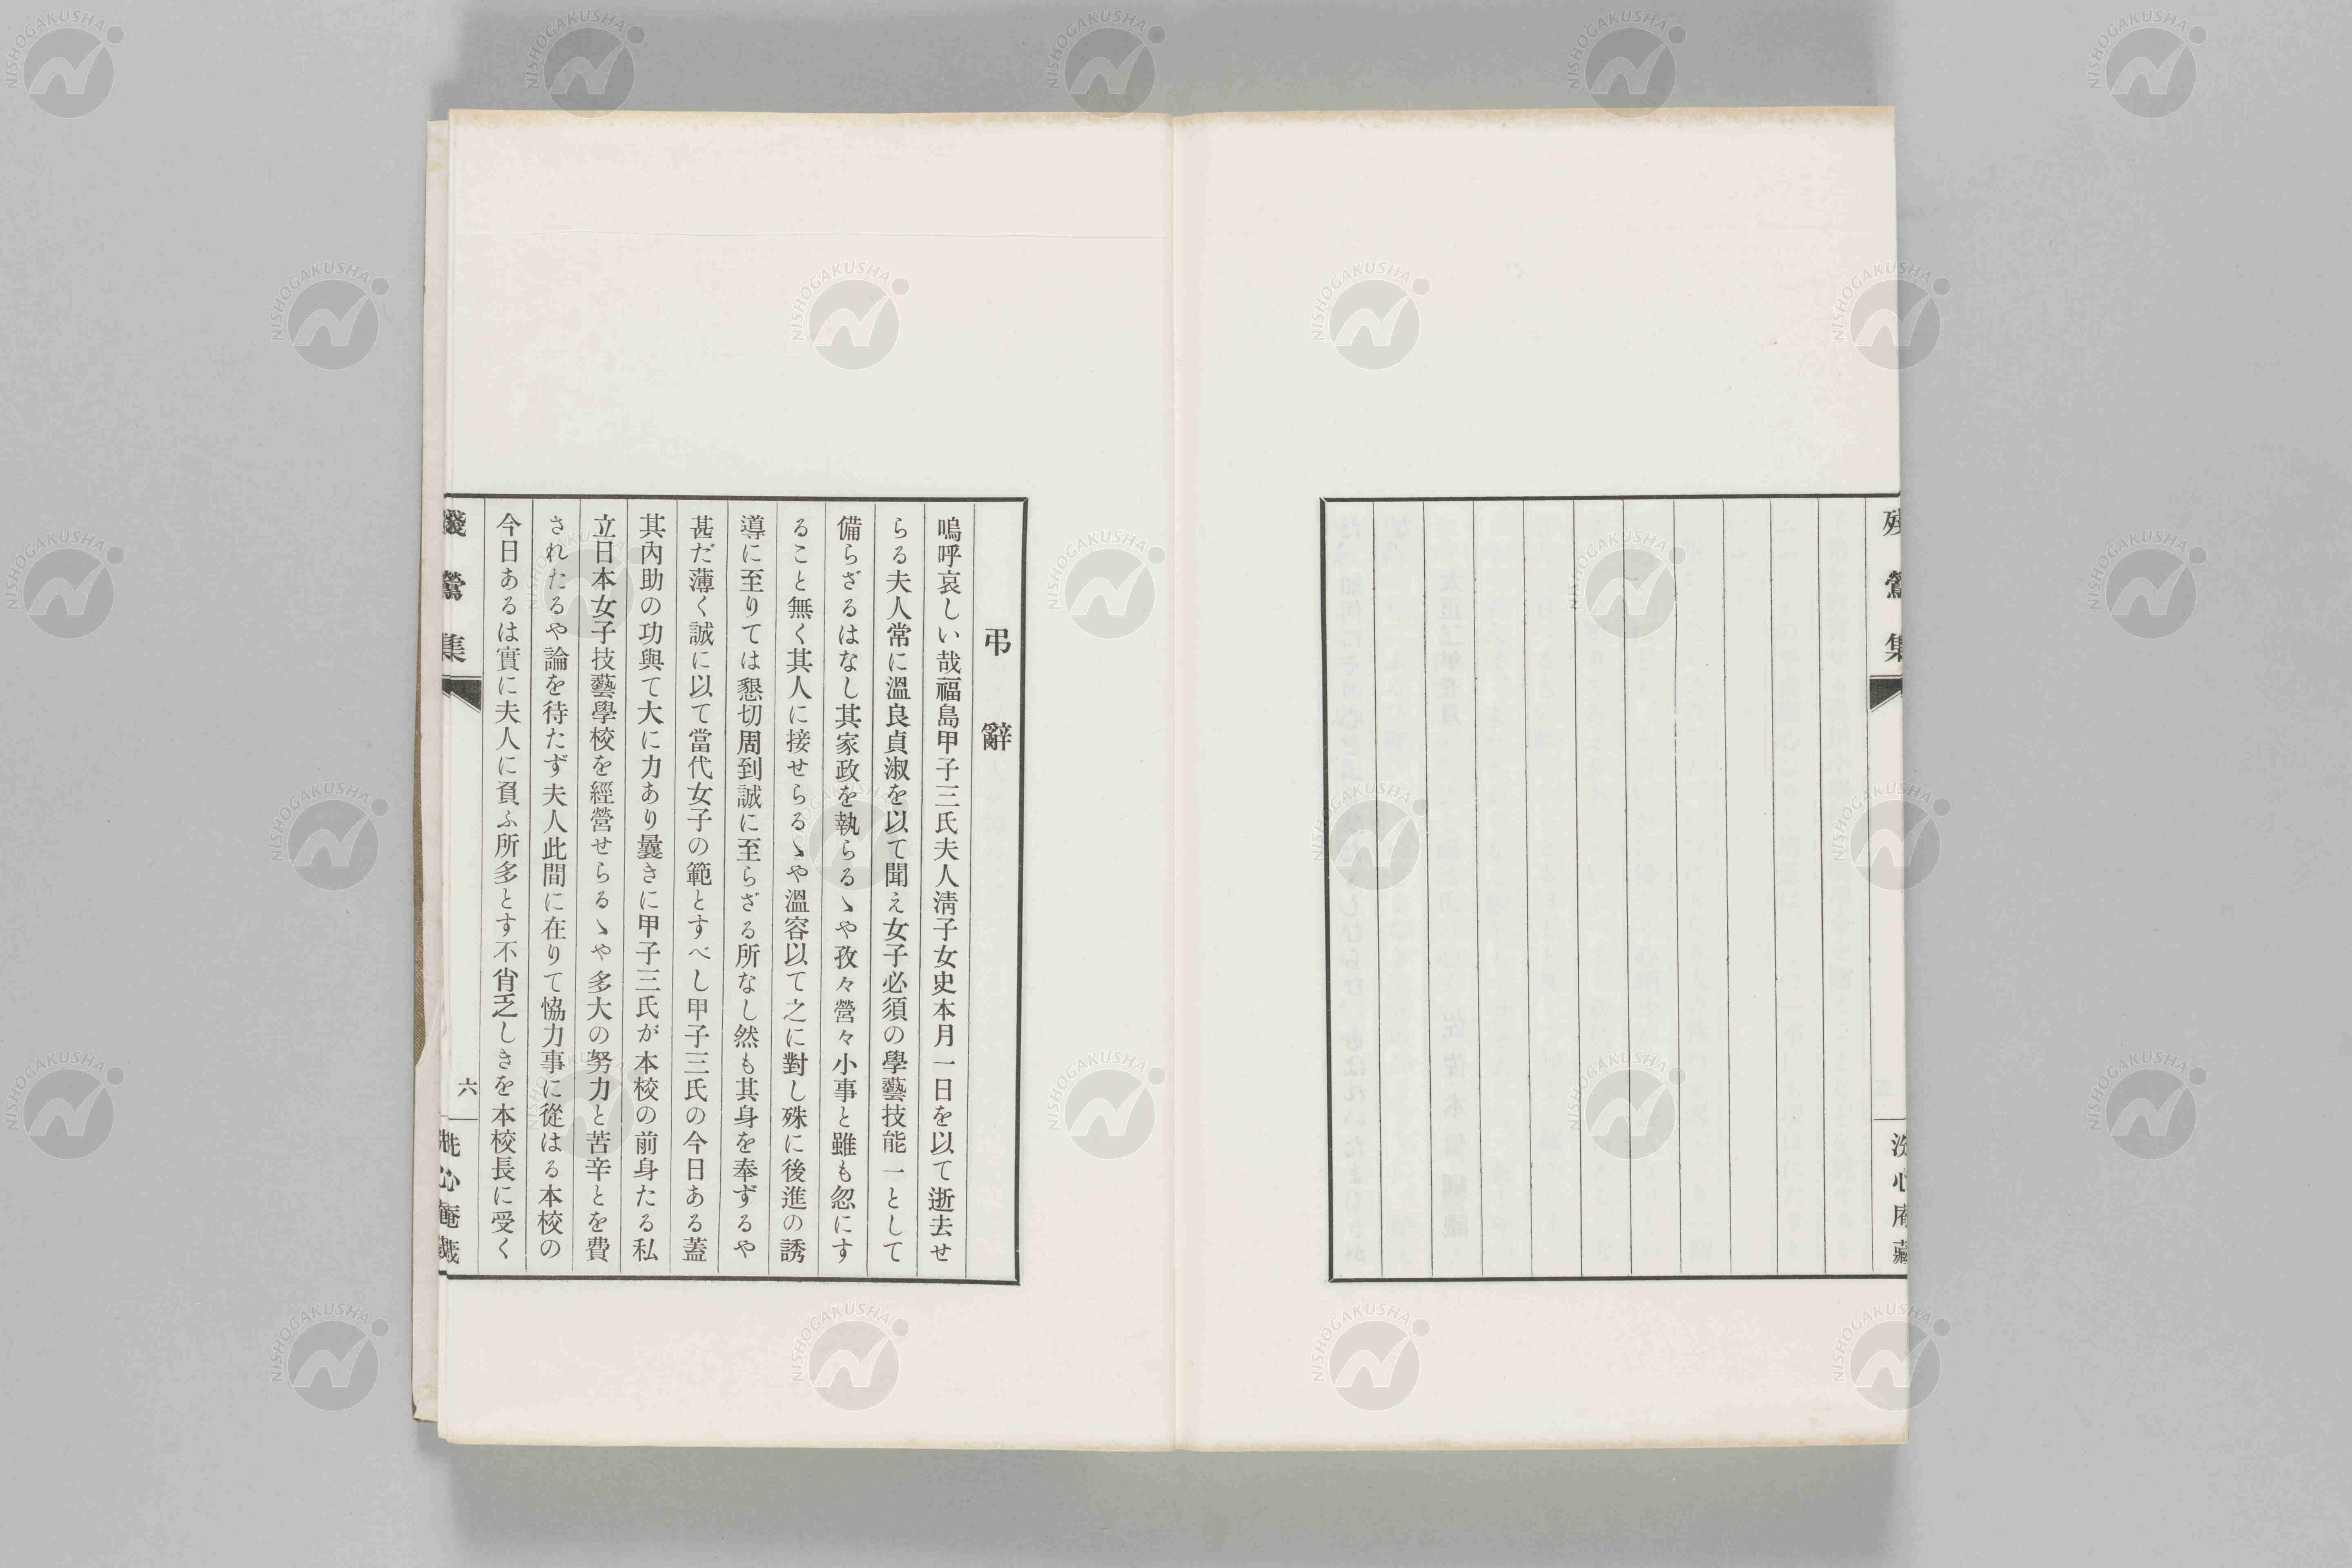 殘鶯集
洗心庵藏
弔辭
嗚呼哀しい哉福島甲子三氏夫人淸子女史本月一日を以て逝去せ
らる夫人常に溫良貞淑を以て聞え女子必須の學藝技能一として
備らざるはなし其家政を執らるゝや孜々營々小事と雖も忽にす
ること無く其人に接せらるゝや溫容以て之に對し殊に後進の誘
導に至りては懇切周到誠に至らざる所なし然も其身を奉ずるや
甚だ薄く誠に以て當代女子の範とすべし甲子三氏の今日ある蓋
其內助の功與て大に力あり曩きに甲子三氏が本校の前身たる私
立日本女子技藝學校を經營せらるゝや多大の努力と苦辛とを費
されたるや論を待たず夫人此間に在りて恊力事に從はる本校の
今日あるは實に夫人に負ふ所多とす不肖乏しきを本校長に受く
殘鶯集
六
洗心庵藏
NISHOGAKUSHA